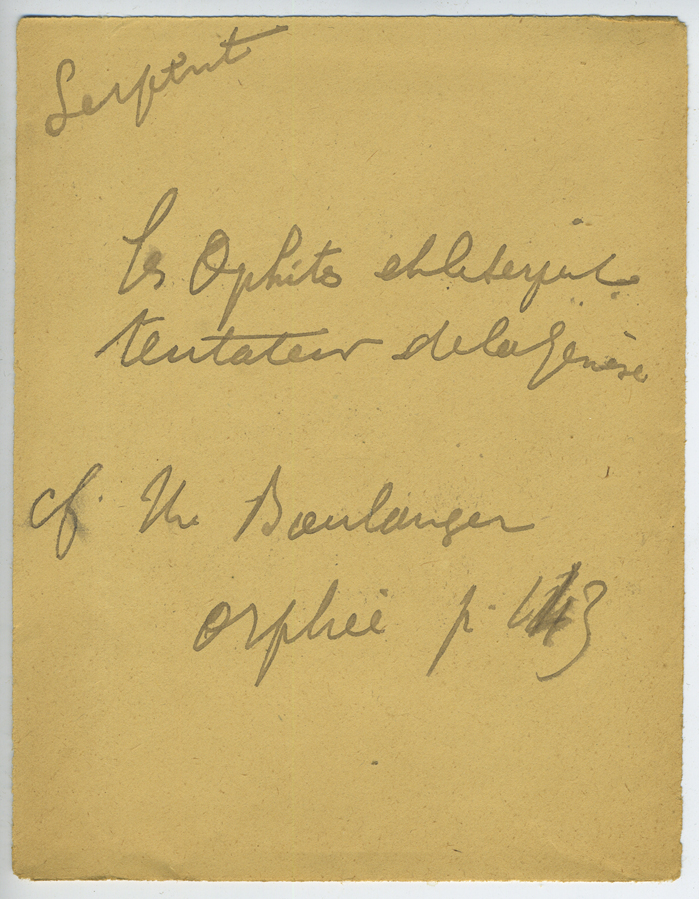 Serpent
les Ophites et le serpent
tentateur de la Genèse
cf. Boulanger
Orphée p.